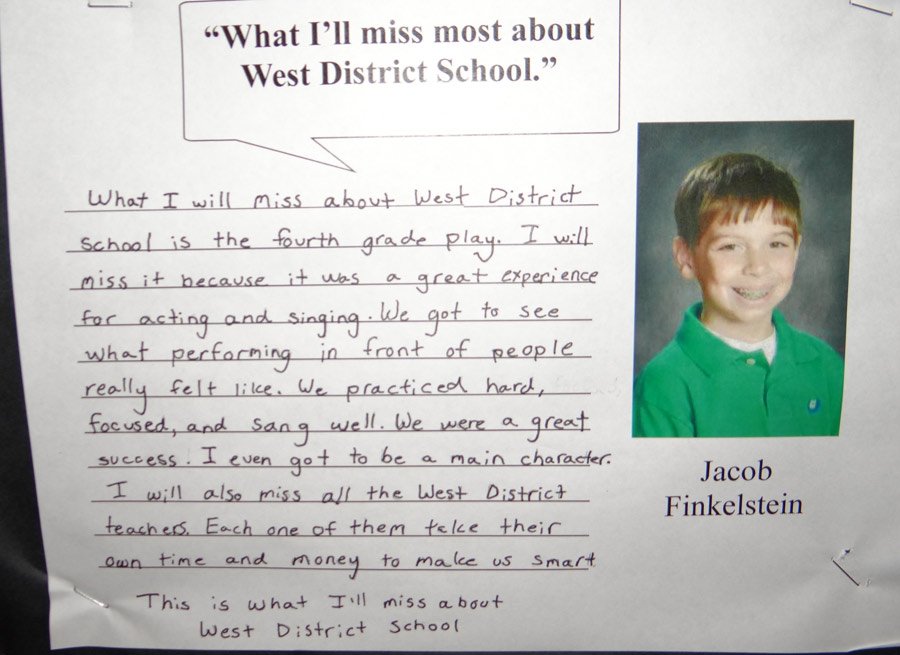 “What I’ll miss most about
West District School.”
What I will miss about West District
school is the fourth grade play. I will
miss it because it was a great experience
for acting and singing. We got to see
what performing in front of people
really felt like. We practiced hard,
focused, and sang well. We were a great
success. I even got to be a main character.
I will also miss all the West District
teachers. Each one of them take their
own time and money to make us smart
This is what I'll miss about
West District School
Jacob
Finkelstein